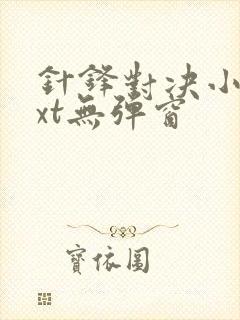 針鋒對決小
xt無彈窗
寶依圓